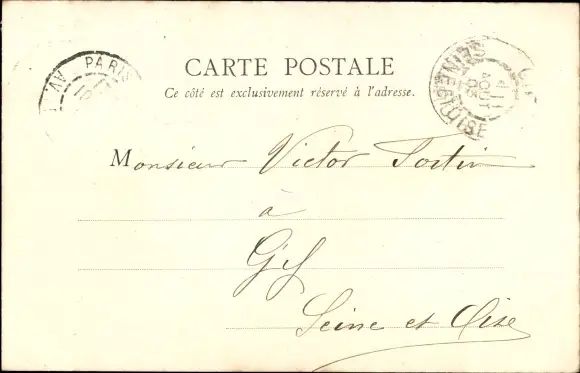 PARIS
AV.
CARTE POSTALE
Ce côté est exclusivement réservé à l'adresse.
SEINE-ET-OISE
AOUT
Monsieur Victor Fortin
à
Gif
Seine et Oise